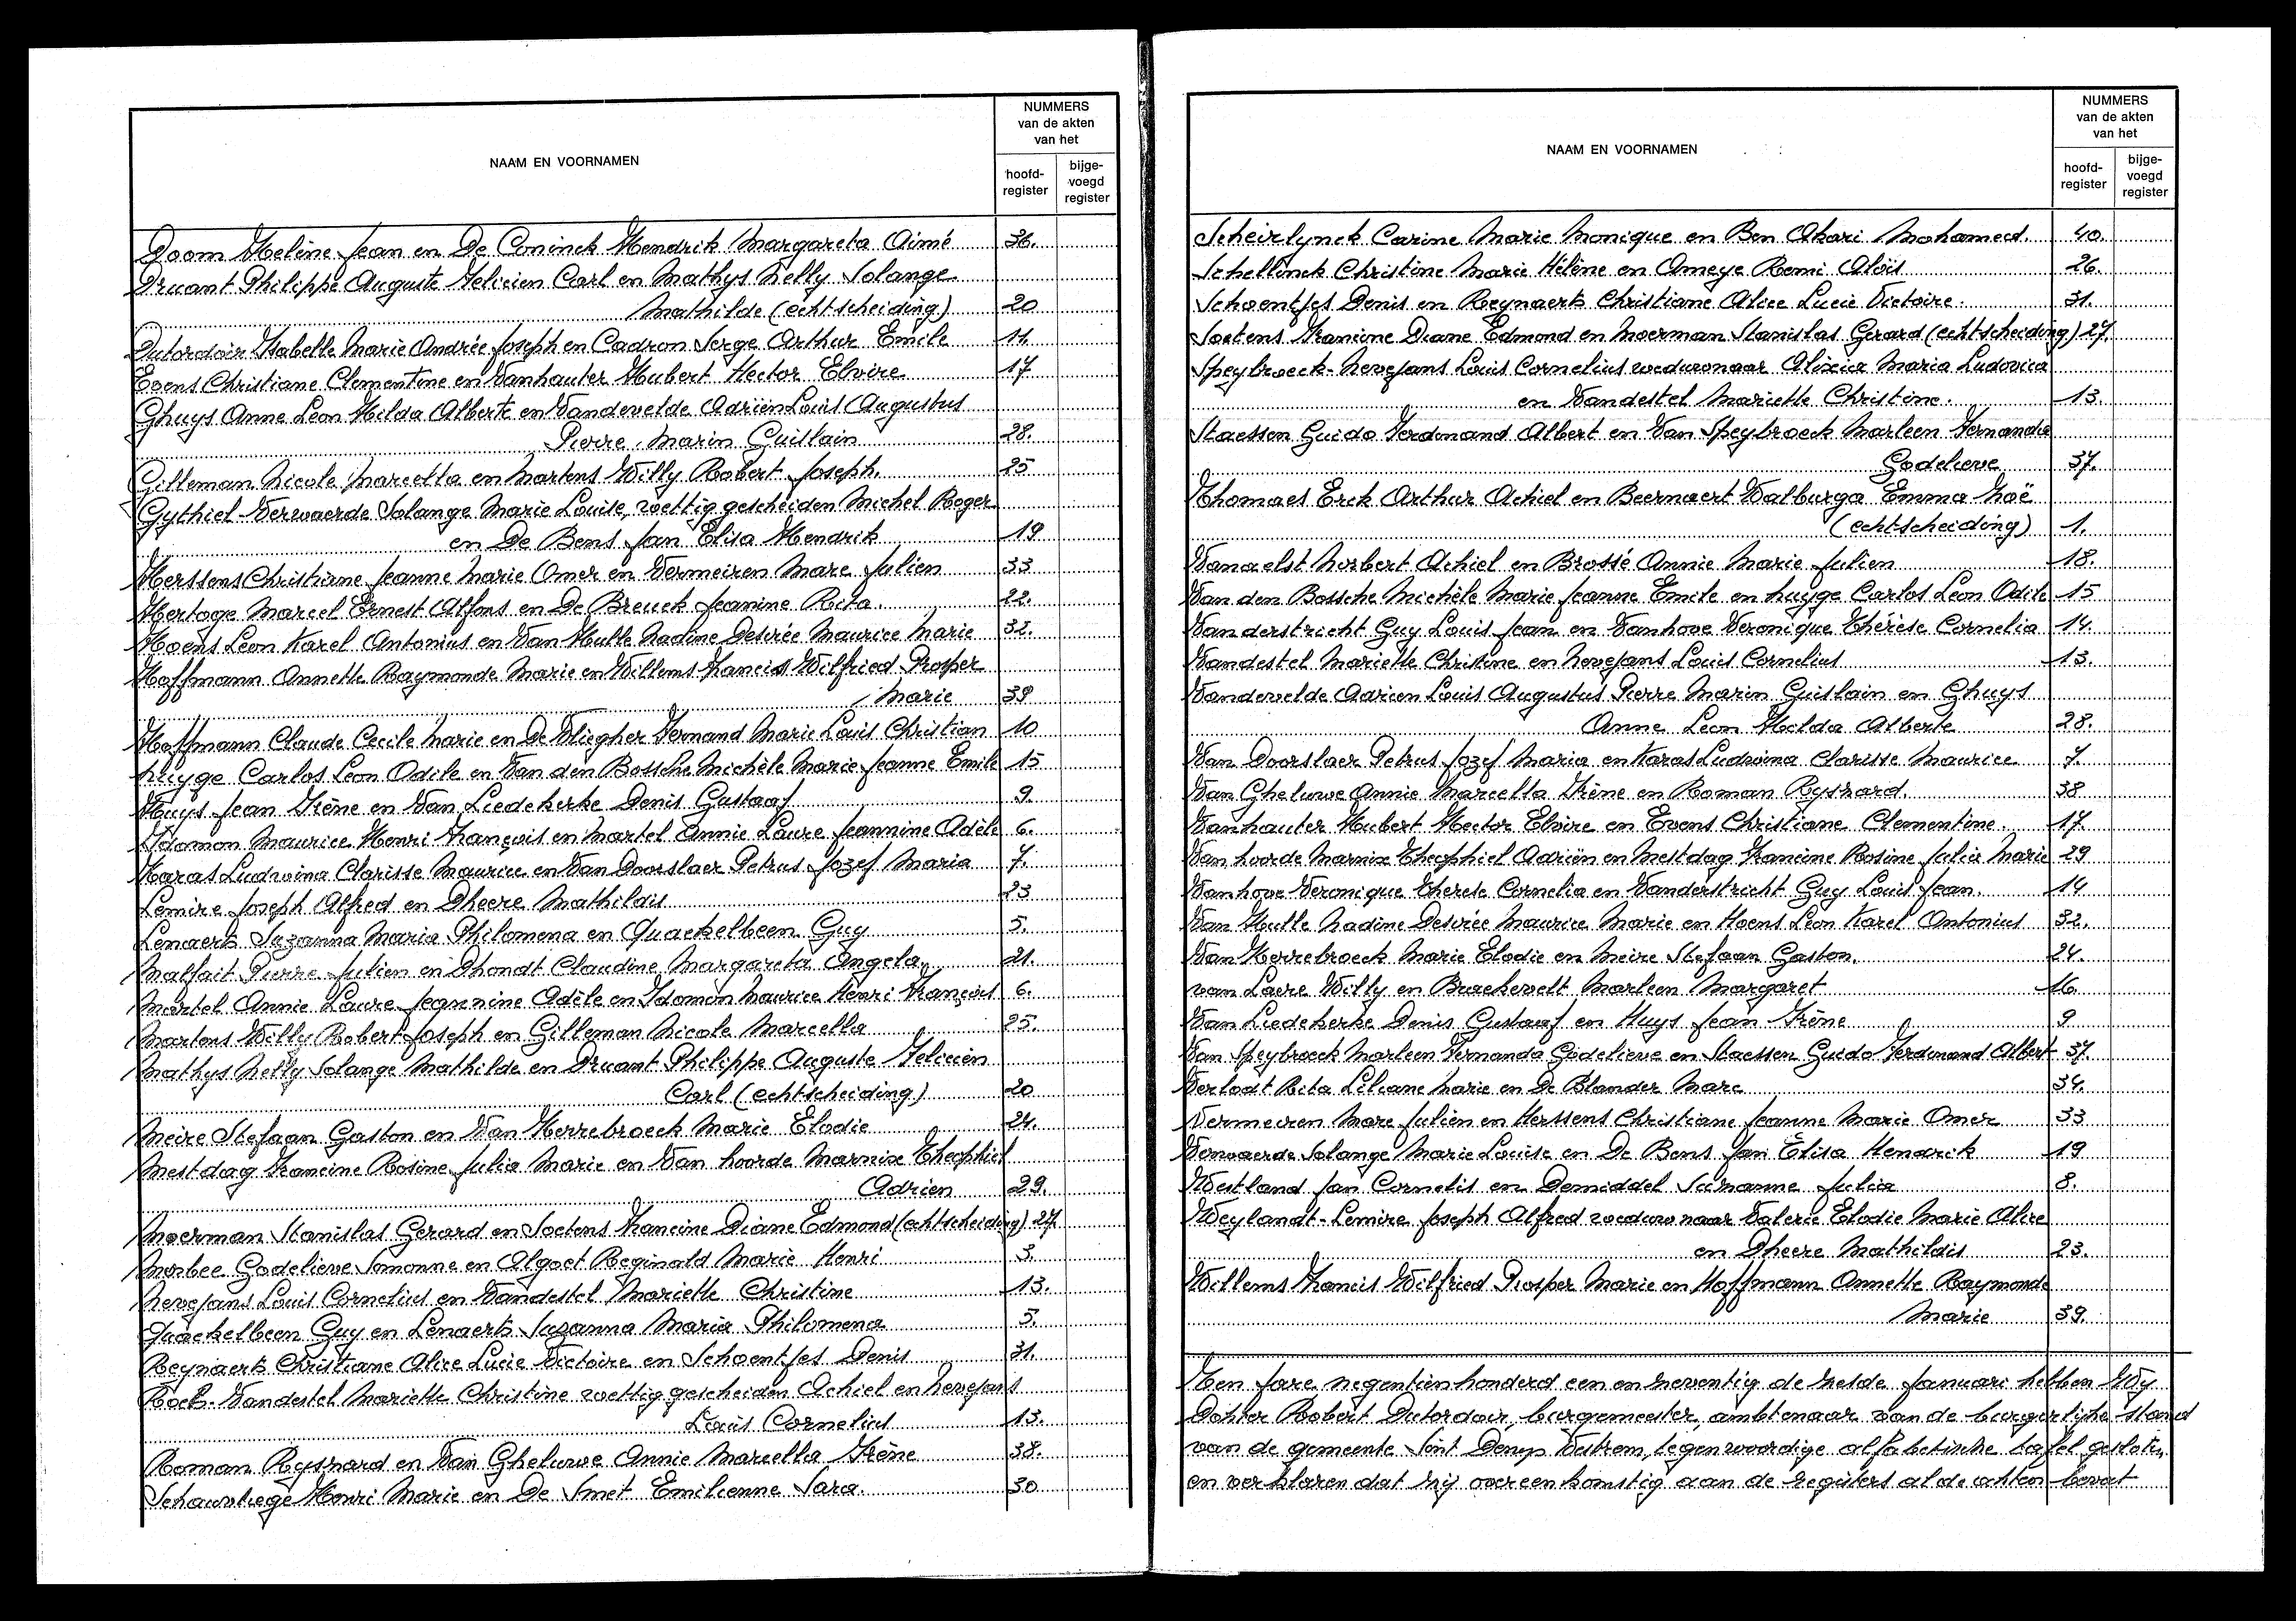 NAAM EN VOORNAMEN
NUMMERS
van de akten
van het
hoofd-
register
bijge-
voegd
register
Doom Helène Jean en De Coninck Hendrik Margareta Aimé 36.
Druant Philippe Auguste Felicien Carl en Mathys Nelly Solange
Mathilde (echtscheiding) 20
Dutordoir Isabelle Marie Andrée Joseph en Cadron Serge Arthur Emile 11.
Evens Christiane Clementine en Vanhauter Hubert Hector Elvire 17
Ghuys Anne Leon Hilda Alberte en Vandevelde Adriën Louis Augustus
Pierre Marin Guislain 28.
Gilleman Nicole Marcella en Martens Willy Robert Joseph. 25
Gythiel-Verwaerde Solange Marie Louise, wettig gescheiden Michel Roger
en De Bens Jan Elisa Hendrik 19
Herssens Christiane Jeanne Marie Omer en Vermeiren Marc Julien 33
Hertoge Marcel Ernest Alfons en De Breuck Jeanine Rita. 22.
Hoens Leon Karel Antonius en Van Hulle Nadine Desirée Maurice Marie 32.
Hoffmann Annette Raymonde Marie en Willems Francis Wilfried Prosper
Marie 39
Hoffmann Claude Cecile Marie en De Vliegher Fernand Marie Louis Christian 10
Huyge Carlos Leon Odile en Van den Bossche Michèle Marie Jeanne Emile 15
Huys Jean Irène en Van Liedekerke Denis Gustaaf 9.
Idomon Maurice Henri François en Martel Annie Laure Jeannine Adèle 6.
Karas Ludwina Clarisse Maurice en Van Doorslaer Petrus Jozef Maria 7.
Lemire Joseph Alfred en Dheere Mathildis 23
Lenaerts Suzanna Maria Philomena en Quackelbeen Guy 5.
Malfait Pierre Julien en Dhondt Claudine Margareta Angela. 21.
Martel Annie Laure Jeannine Adèle en Idomon Maurice Henri François 6.
Martens Willy Robert Joseph en Gilleman Nicole Marcella 25.
Mathys Nelly Solange Mathilde en Druant Philippe Auguste Felicien
Carl (echtscheiding) 20
Meire Stefaan Gaston en Van Herrebroeck Marie Elodie 24.
Mestdag Francine Rosine Julia Marie en Van hoorde Marnix Theophiel
Adrien 29.
Moerman Stanislas Gerard en Soetens Francine Diane Edmond (echtscheiding) 27.
Morbee Godelieve Simonne en Algoet Reginald Marie Henri 3.
Nevejans Louis Cornelius en Vandestel Mariette Christine 13.
Quackelbeen Guy en Lenaerts Suzanna Maria Philomena 5.
Reynaerts Christiane Alice Lucie Victoire en Schoentjes Denis 31.
Vandestel Mariette Christine wettig gescheiden Achiel en Nevejans
Louis Cornelius 13.
Roman Ryszard en Van Gheluwe Annie Marcella Irène 38.
Schauvliege Henri Marie en De Smet Emilienne Sara. 30
NAAM EN VOORNAMEN
NUMMERS
van de akten
van het
hoofd-
register
bijge-
voegd
register
Scheirlynck Carine Marie Monique en Ben Akari Mohamed. 40.
Schellinck Christine Marie Hélène en Omeye Remi Aloïs 26.
Schoentjes Denis en Reynaerts Christiane Alice Lucie Victoire. 31.
Soetens Francine Diane Edmond en Moerman Stanislas Gerard (echtscheiding) 27.
Speybroeck-Nevejans Louis Cornelius weduwnaar Alixia Maria Ludovica
en Vandestel Mariette Christine. 13.
Staessen Guido Ferdinand Albert en Van Speybroeck Marleen Fernanda
Godelieve 37.
Thomaes Erik Arthur Achiel en Beernaert Walburga Emma Noë
(echtscheiding) 1.
Vanaelst Norbert Achiel en Brossé Annie Marie Julien 18.
Van den Bossche Michèle Marie Jeanne Emile en Huyge Carlos Leon Odile 15
Vanderstricht Guy Louis Jean en Vanhove Veronique Thérèse Cornelia 14.
Vandestel Mariette Christine en Nevejans Louis Cornelius 13.
Vandevelde Adrien Louis Augustus Pierre Marin Guislain en Ghuys
Anne Leon Hilda Alberte 28.
Van Doorslaer Petrus Jozef Maria en Karas Ludwina Clarisse Maurice 7.
Van Gheluwe Annie Marcella Irène en Roman Ryszard. 38
Vanhauter Hubert Hector Elvire en Evens Christiane Clementine. 17.
Van hoorde Marnix Theophiel Adriën en Mestdag Francine Rosine Julia Marie 29
Vanhove Veronique Therese Cornelia en Vanderstricht Guy Louis Jean. 14
Van Hulle Nadine Desirée Maurice Marie en Hoens Leon Karel Antonius 32.
Van Herrebroeck Marie Elodie en Meire Stefaan Gaston. 24.
van Laere Willy en Braekevelt Marleen Margaret 16.
Van Liedekerke Denis Gustaaf en Huys Jean Irène 9
Van Speybroeck Marleen Fernanda Godelieve en Staessen Guido Ferdinand Albert 37.
Verlodt Rita Liliane Marie en De Blander Marc 34.
Vermeiren Marc Julien en Herssens Christiane Jeanne Marie Omer 33
Verwaerde Solange Marie Louise en De Bens Jan Elisa Hendrik 19
Westland Jan Cornelis en Demiddel Suzanne Julia 8.
Weylandt-Lemire Joseph Alfred weduwnaar Valerie Elodie Marie Alice
en Dheere Mathildis 23.
Willems Francis Wilfried Prosper Marie en Hoffmann Annette Raymonde
Marie 39.
Ten jare negentienhonderd een en zeventig de zelde Januari hebben Wy
Dokter Robert Dutordoir, burgemeester, ambtenaar van de burgerlijke stand
van de gemeente Sint Denijs Westrem, tegenwoordige alfabetische tafel gesloten,
en verklaren dat zij overeenkomstig aan de registers al de akten bevat